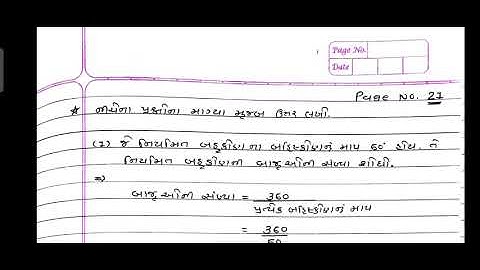 Page No.
Date
Page No. 27
* નીચેના પ્રશ્નોના માગ્યા મુજબ ઉત્તર લખો.
(1) જે નિયમિત બહુકોણના બહિષ્કોણનું માપ 60° હોય, તે
નિયમિત બહુકોણની બાજુઓની સંખ્યા શોધો.
⇒
બાજુઓની સંખ્યા = 360
પ્રત્યેક બહિષ્કોણનું માપ
= 360
60